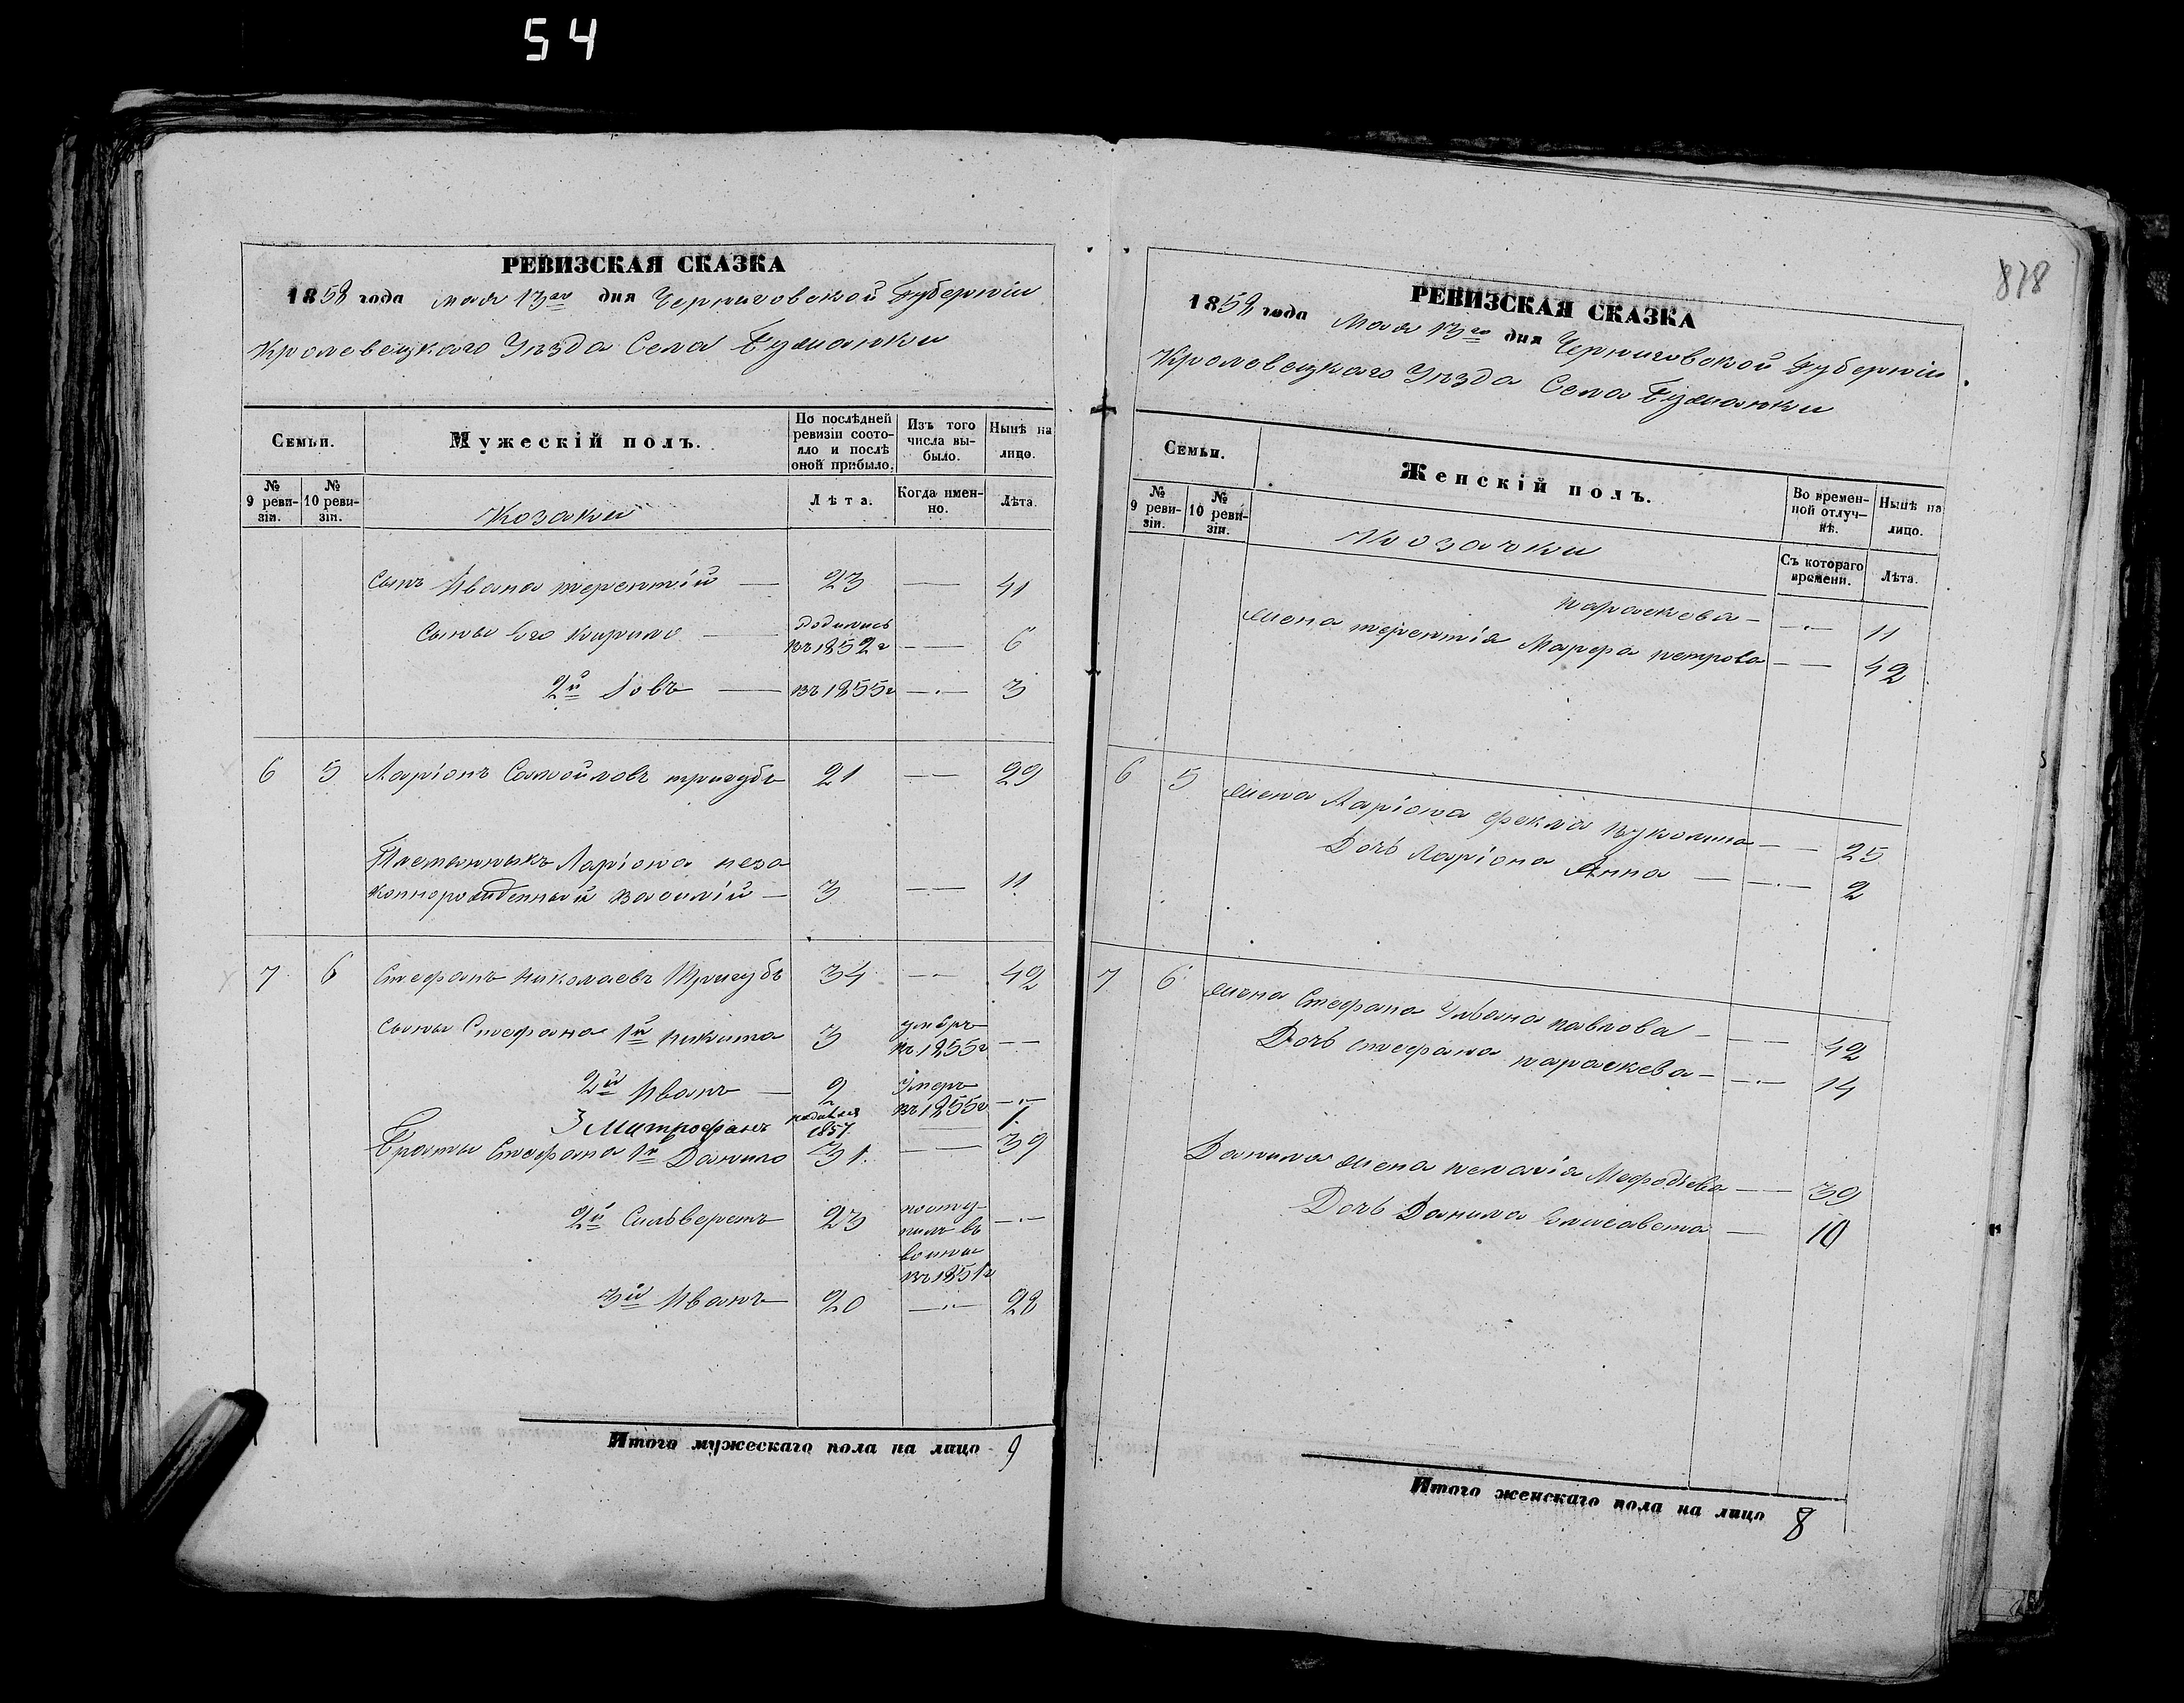 54
РЕВИЗСКАЯ СКАЗКА
1858 года мая 13го дня Черниговской Губерніи
Кролевецкаго Уѣзда Села Бужанки
Семьи.
Мужескій полъ.
По послѣдней ревизіи состояло и послѣ оной прибыло.
Изъ того числа выбыло.
Нынѣ на лицо.
№ 9 ревизіи.
№ 10 ревизіи.
Козаки
Лѣта.
Когда именно.
Лѣта.
Сынъ Ивана терентій — 23 — 41
Сыны Его Кирило — родились въ 1852г — 6
2й Іовъ — въ 1855г — 3
6 5 Ларіонъ Самойловъ тригубъ 21 — 29
Племянникъ Ларіона неза
коннорожденный Василій — 3 — 11
7 6 Стефанъ Николаевъ Тригубъ 34 — 42
Сыны Стефана 1й Никита 3 умеръ въ 1855г —
2й Иванъ — 2 умеръ въ 1855г —
3 Митрофанъ родился 1857 1
Браты Стефана 1й Данило 31 — 39
2й Сильверстъ 23 поступилъ въ 1851г —
3й Иванъ 20 — 28
Итого мужескаго пола на лицо 9
878
РЕВИЗСКАЯ СКАЗКА
1858 года Мая 13го дня Черниговской Губерніи
Кролевецкаго Уѣзда Села Бужанки
Семьи.
Женскій полъ.
Во временной отлучкѣ.
Нынѣ на лицо.
№ 9 ревизіи.
№ 10 ревизіи.
Козачки
Съ котораго времени.
Лѣта.
параскева — 11
жена терентія Марфа петрова — 42
6 5 жена Ларіона фекла — 25
Дочь Ларіона Анна — 2
7 6 жена Стефана Ульяна павлова — 42
Дочь стефана параскева — 14
Данила жена пелагія Мефодіева — 39
Дочь Данила Елисавета — 10
Итого женскаго пола на лицо 8